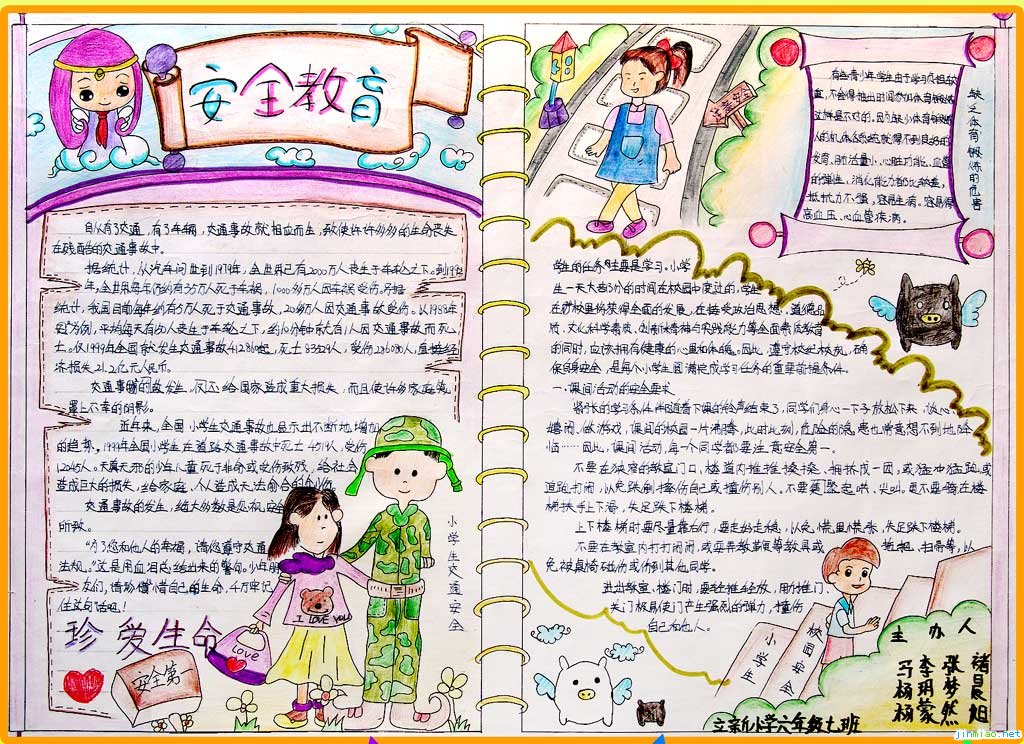 安全教育
自从有了交通,有了车辆,交通事故就相应而生,致使许许多多的生命丧失
在残酷的交通事故中。
据统计,从汽车问世到1979年,全世界已有2000万人丧生于车轮之下。到
全世界每年仍约有35万人死于车祸,1000多万人因车祸受伤。
统计,我国目前每年约有5万人死于交通事故,20多万人因交通事故受伤。
平均每天有 人丧生于车轮之下,约10分钟就有1人因交通事故而死亡
仅1999年全国就发生交通事故412860起,死亡83529人,受伤286080人,直接经
济损失21.2亿元人民币。
交通事故的发生,不仅给国家造成重大损失,而且使许多家庭笼
罩上不幸的阴影。
近年来,全国小学生交通事故也显示出不断地增加
的趋势,1999年全国小学生在道路交通事故中死亡4519人,受伤
12045人。天真无邪的少年儿童死于非命或受伤致残,给社会
造成巨大的损失,给家庭、个人造成无法愈合的创伤。
交通事故的发生,绝大多数是忽视安全
所致。
“为了您和他人的幸福,请您遵守交通
法规。”这是用血泪总结出来的警句。少年朋
友们,请珍惜自己的生命,千万牢记
住这句话吧!
珍爱生命
安全第一
小学生交通安全
I LOVE YOU
Love
注意安全
缺乏体育锻炼的危害
有些青少年学生由于学习
不会得抽出时间参加体育锻炼
这样是不对的。因为缺少体育锻炼
人的机体各系统就得不到良好的
发育,肺活量小、心脏功能、血管
的弹性、消化能力都比较差,
抵抗力不强,容易生病。容易得
高血压、心血管疾病。
学生的任务主要是学习。小学
生一天大有 的时间在校园中度过的,学生
在学校里将获得全面的发展,在接受政治思想、道德品
质、文化科学素质、创新精神与实践能力等全面素质教育
的同时,应该拥有健康的心里和体魄。因此,遵守校纪校规,确
保自身安全,是每个小学生圆满完成学习任务的重要前提条件。
一.课间活动的安全要求
紧张的学习 伴随着下课的铃声结束了,同学们身心一下子放松下来,
嬉闹、做游戏,课间的校园一片沸腾,此时此刻,危险的隐患也常意想不到地降
临……因此,课间活动,每一个同学都要注意安全第一。
不要在狭窄的教室门口,楼道内推推搡搡、拥挤成一团,或猛冲猛跑,或
追跑打闹,以免跌倒摔伤自己或撞伤别人。不要 起哄、尖叫。更不要骑在楼
梯扶手上下滑,失足跌下楼梯。
上下楼梯时要尽量靠右行,要走好走稳,以免慌里慌张,失足跌下楼梯。
不要在教室内打打闹闹,或耍弄教鞭等教具或 拖把、扫帚等,以
免被桌椅碰伤或伤到其他同学。
进出教室、楼门时,要轻推轻放,用力推门、
关门极易使门产生强烈的弹力,撞伤
自己和他人。
小学生
校园安全
主办人
褚晨旭
张梦然
李玥蒙
马杨杨
立新小学六年级七班
jinmiao.net